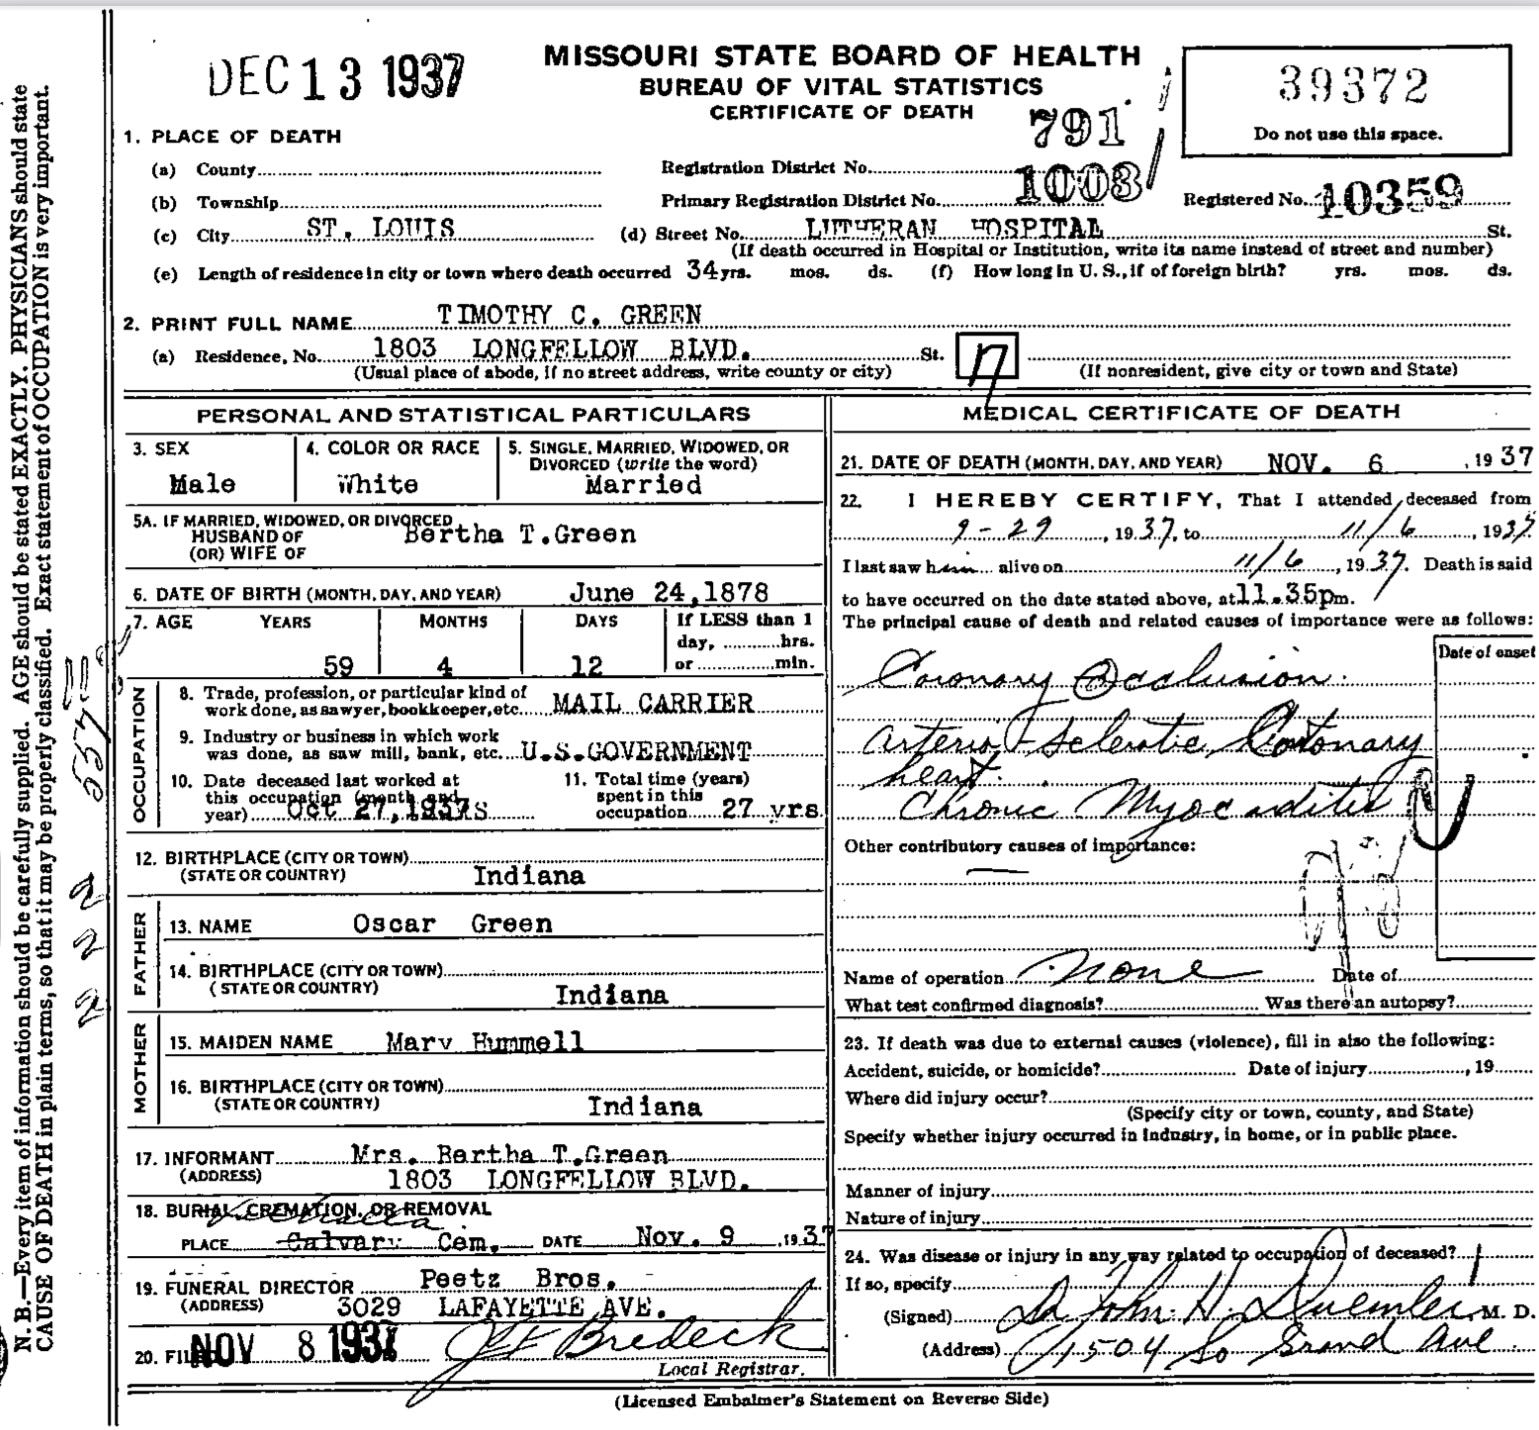 DEC 13 1937
MISSOURI STATE BOARD OF HEALTH
BUREAU OF VITAL STATISTICS
CERTIFICATE OF DEATH
39372
Do not use this space.
1. PLACE OF DEATH
791
(a) County
Registration District No.
1003
(b) Township
Primary Registration District No.
Registered No. 10359
(c) City ST. LOUIS (d) Street No. LUTHERAN HOSPITAL St.
(If death occurred in Hospital or Institution, write its name instead of street and number)
(e) Length of residence in city or town where death occurred 34 yrs. mos. ds. (f) How long in U. S., if of foreign birth? yrs. mos. ds.
2. PRINT FULL NAME TIMOTHY C. GREEN
(a) Residence, No. 1803 LONGFELLOW BLVD. St.
(Usual place of abode, if no street address, write county or city) (If nonresident, give city or town and State)
PERSONAL AND STATISTICAL PARTICULARS
3. SEX
Male
4. COLOR OR RACE
White
5. SINGLE, MARRIED, WIDOWED, OR
DIVORCED (write the word)
Married
5A. IF MARRIED, WIDOWED, OR DIVORCED
HUSBAND OF Bertha T.Green
(OR) WIFE OF
6. DATE OF BIRTH (MONTH, DAY, AND YEAR) June 24,1878
7. AGE YEARS MONTHS DAYS If LESS than 1
day, hrs.
59 4 12 or min.
OCCUPATION
8. Trade, profession, or particular kind of
work done, as sawyer, bookkeeper, etc. MAIL CARRIER
9. Industry or business in which work
was done, as saw mill, bank, etc. U.S.GOVERNMENT
10. Date deceased last worked at
this occupation (month and
year) Oct 27,1937
11. Total time (years)
spent in this
occupation 27 yrs.
12. BIRTHPLACE (CITY OR TOWN)
(STATE OR COUNTRY) Indiana
FATHER
13. NAME Oscar Green
14. BIRTHPLACE (CITY OR TOWN)
(STATE OR COUNTRY) Indiana
MOTHER
15. MAIDEN NAME Mary Hummell
16. BIRTHPLACE (CITY OR TOWN)
(STATE OR COUNTRY) Indiana
17. INFORMANT Mrs. Bertha T.Green
(ADDRESS) 1803 LONGFELLOW BLVD.
18. BURIAL, CREMATION, OR REMOVAL
PLACE Calvary Cem. DATE Nov. 9 ,1937
19. FUNERAL DIRECTOR Peetz Bros.
(ADDRESS) 3029 LAFAYETTE AVE.
20. FILED NOV 8 1937 J F Bredeck
Local Registrar.
MEDICAL CERTIFICATE OF DEATH
21. DATE OF DEATH (MONTH, DAY, AND YEAR) NOV. 6 , 1937
22. I HEREBY CERTIFY, That I attended deceased from
9-29 , 1937, to 11/6 , 1937
I last saw him alive on 11/6 , 1937. Death is said
to have occurred on the date stated above, at 11.35pm.
The principal cause of death and related causes of importance were as follows:
Date of onset
Coronary Occlusion.
Arterio-Sclerotic Coronary
heart.
Chronic Myocarditis
Other contributory causes of importance:
Name of operation none Date of
What test confirmed diagnosis? Was there an autopsy?
23. If death was due to external causes (violence), fill in also the following:
Accident, suicide, or homicide? Date of injury , 19
Where did injury occur?
(Specify city or town, county, and State)
Specify whether injury occurred in industry, in home, or in public place.
Manner of injury
Nature of injury
24. Was disease or injury in any way related to occupation of deceased?
If so, specify
(Signed) Dr John H. Duemler M. D.
(Address) 1504 So Grand Ave
(Licensed Embalmer's Statement on Reverse Side)
N. B.—Every item of information should be carefully supplied. AGE should be stated EXACTLY. PHYSICIANS should state
CAUSE OF DEATH in plain terms, so that it may be properly classified. Exact statement of OCCUPATION is very important.
2
2
2